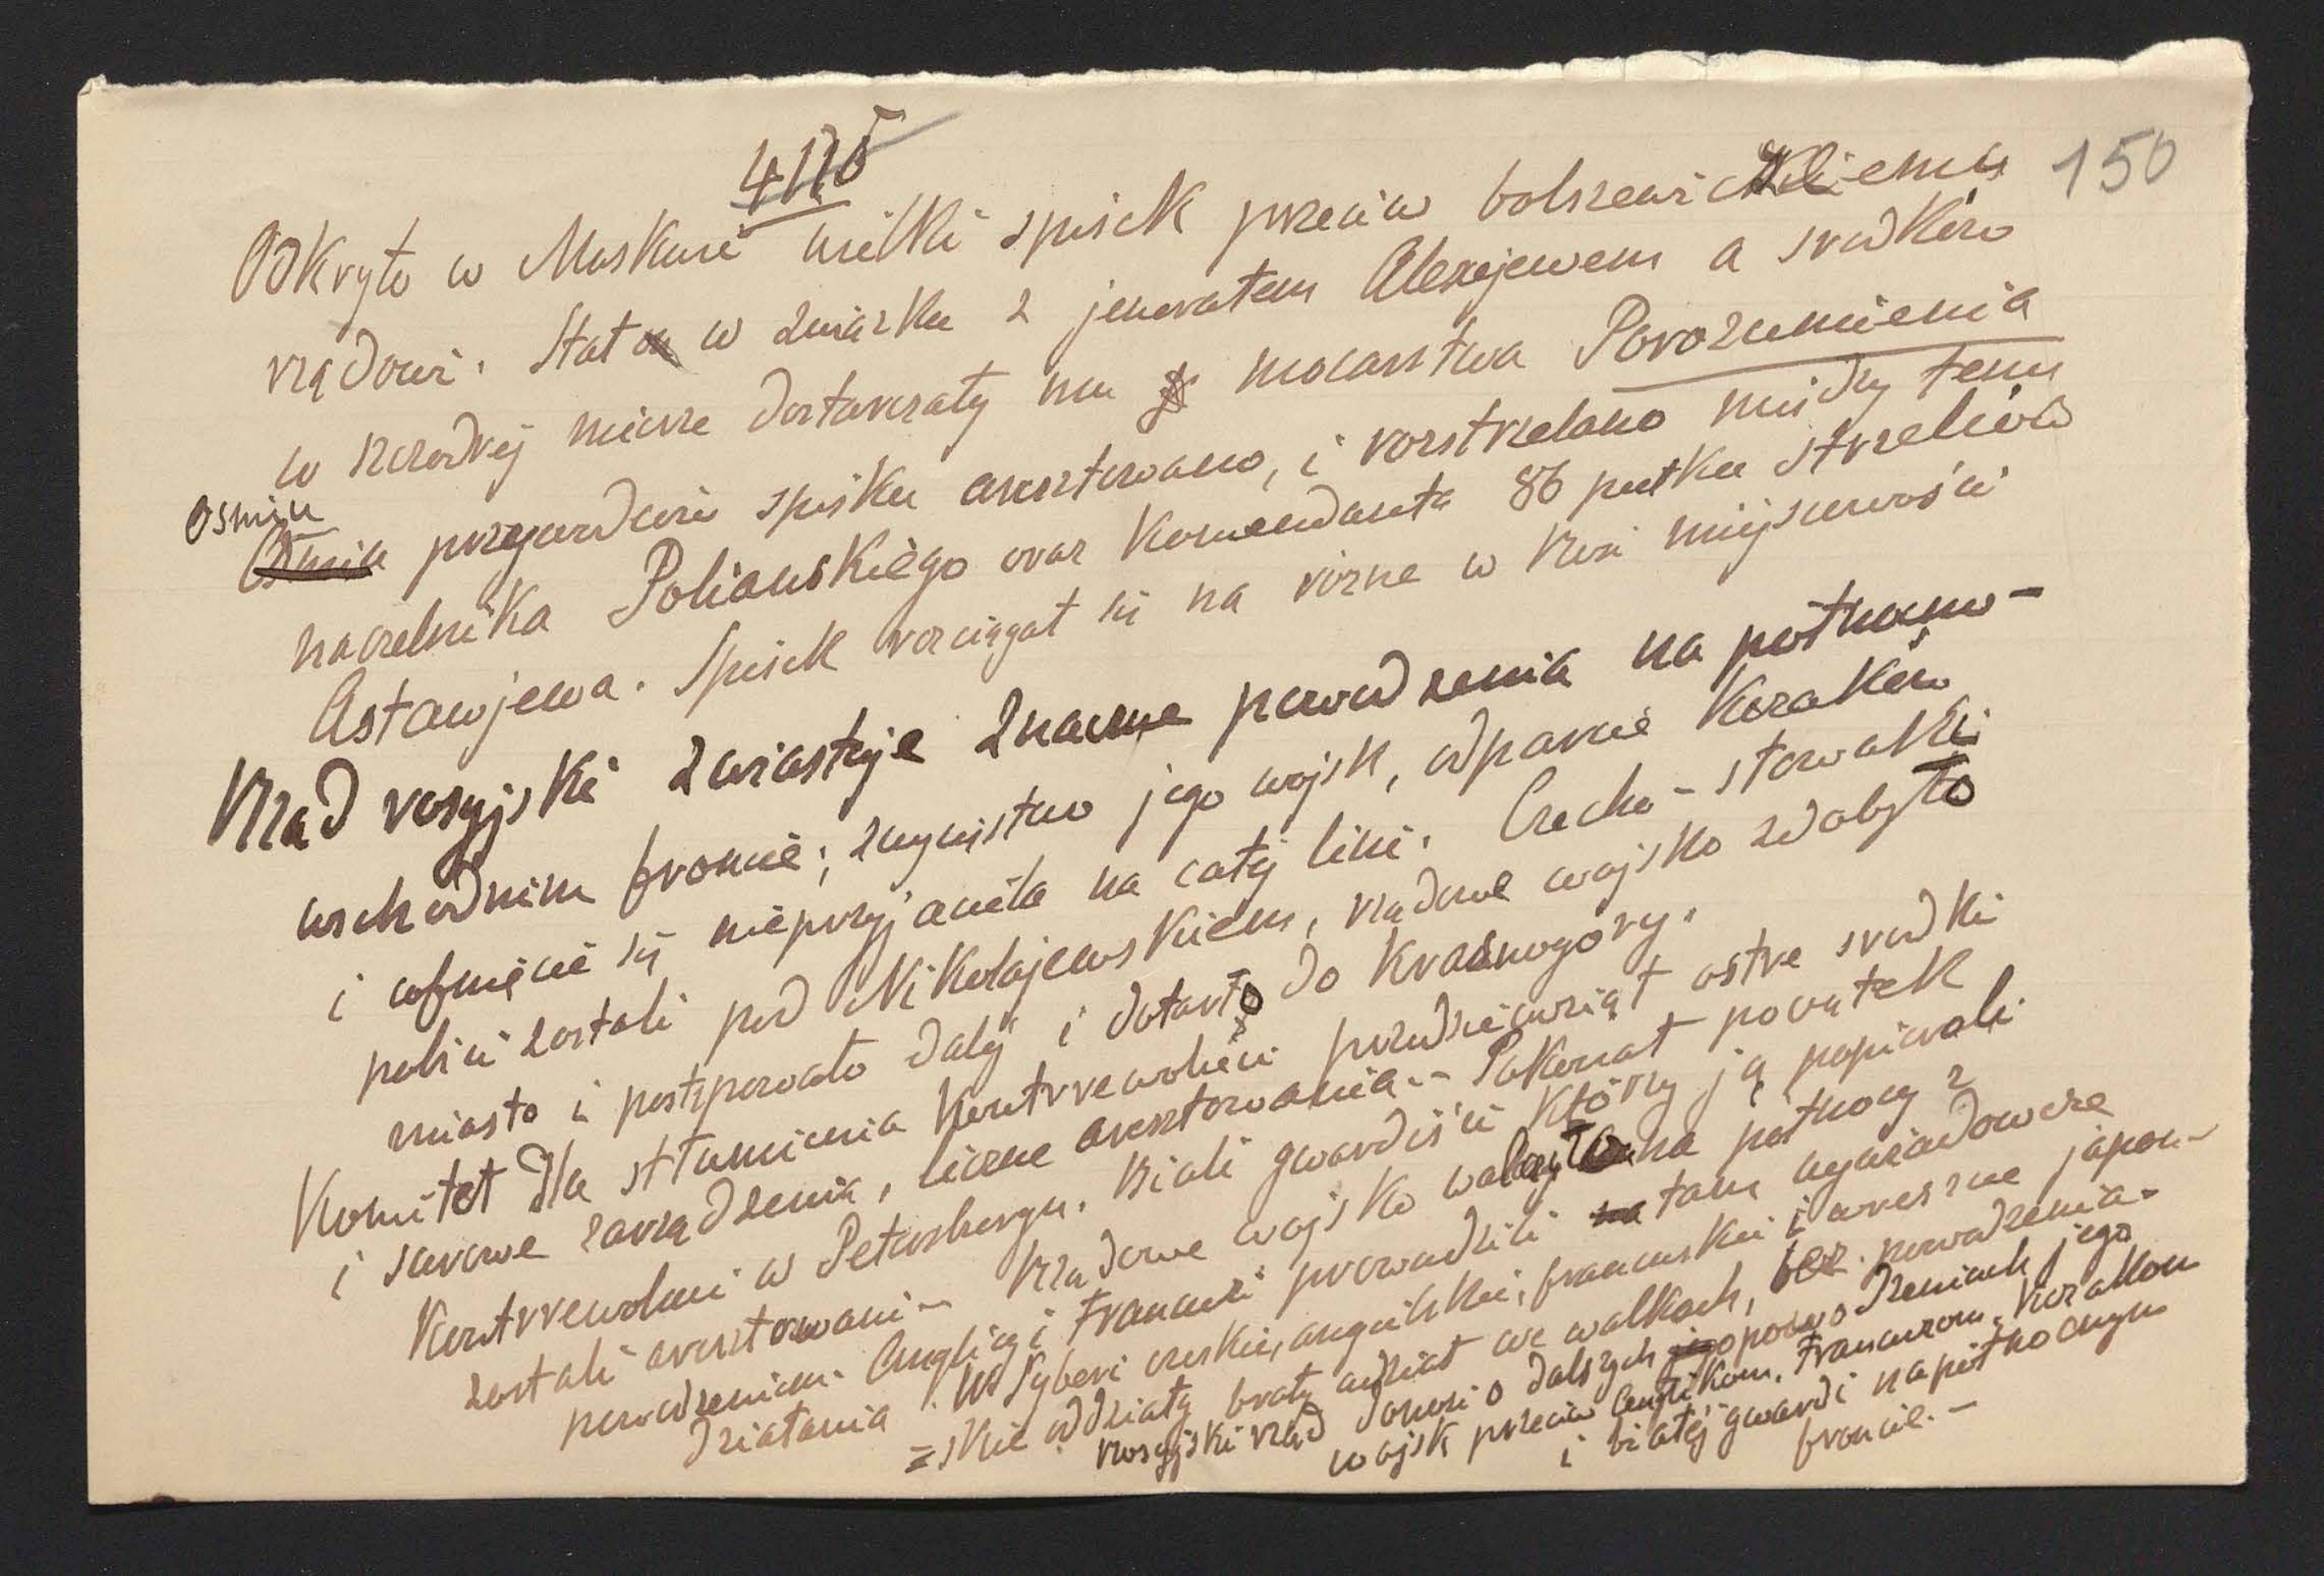 4115
150
Odkryto w Moskwie wielki spisek przeciw bolszewickiemu
rządowi. Stał w związku z jenerałem Alexejewem a środków
w szczodrej mierze dostarczały mu mocarstwa Porozumienia
Ośmiu
Ośmiu przywódców spisku aresztowano, i rozstrzelano między temi
naczelnika Poliańskiego oraz Komendanta 86 pułku strzelców
Astawjewa. Spisek rozciągał się na różne w Rosi miejscowości
Rząd rosyjski zwiastuje znaczne powodzenia na północno-
wschodnim froncie; zwycięstwo jego wojsk, odparcie Kozaków
i cofnięcie się nieprzyjaciela na całej lini. Czecho-słowacki
pobici zostali pod Nikołajewskiem, rządowe wojsko zdobyło
miasto i postępowało dalej i dotarło do Krasnogory.
Komitet dla stłumienia Kontrrewolucii przedsięwziął ostre środki
i surowe zarządzenia, liczne aresztowania.- Pokonał początek
Kontrrewolucii w Petersburgu. Biali gwardiści którzy ją popierali
zostali aresztowani- Rządowe wojsko walczyło na północy z
powodzeniem. Anglicy i Francuzi prowadzili na tam wywiadowcze
działania. W Syberi czeskie, angielskie, francuskie i wreszcie japoń-
=skie oddziały brały udział we walkach, bez powodzenia-
rosyjski rząd donosi o dalszych jego powodzeniach jego
wojsk przeciw Anglikom, Francuzom, Kozakom
i białej gwardi na północnym
froncie.-